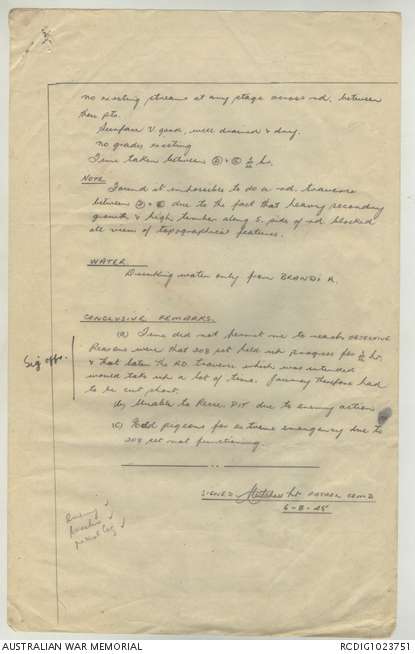 no existing streams at any stage across rd. between
these pts.
Surface V good, well drained & dry.
no grades existing
Time taken between Ⓑ & Ⓒ ½ hr.
NOTE
Found it impossible to do a rd. traverse
between & due to the fact that heavy secondary
growth & high timber along S. side of rd blocked
all view of topographical features.
WATER
Drinking water only from BRANDI R.
CONCLUSIVE REMARKS.
(a) Time did not permit me to reach OBJECTIVE
Reasons were that 208 set held up progress for ½ hr.
& that later the RD. traverse which was intended
would take up a lot of time. Journey therefore had
to be cut short.
Sig offr.
(b) Unable to Recce. PIT due to enemy action
(c) Held pigeons for extreme emergency due to
208 set not functioning.
SIGNED Lt PATROL COMD
6-8-45
Enemy ✓
AUSTRALIAN WAR MEMORIAL
RCDIG1023751